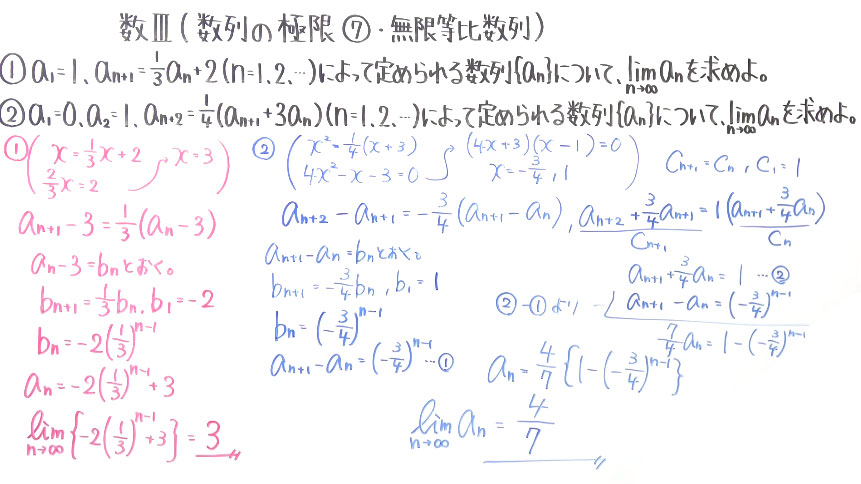 数Ⅲ(数列の極限⑦・無限等比数列)
①a₁=1、aₙ₊₁=1/3aₙ+2(n=1、2、…)によって定められる数列{aₙ}について、lim[n→∞]aₙを求めよ。
②a₁=0、a₂=1、aₙ₊₂=1/4(aₙ₊₁+3aₙ)(n=1、2、…)によって定められる数列{aₙ}について、lim[n→∞]aₙを求めよ。
①(x=1/3x+2 x=3
2/3x=2)
aₙ₊₁-3=1/3(aₙ-3)
aₙ-3=bₙとおく。
bₙ₊₁=1/3bₙ、b₁=-2
bₙ=-2(1/3)ⁿ⁻¹
aₙ=-2(1/3)ⁿ⁻¹+3
lim[n→∞]{-2(1/3)ⁿ⁻¹+3}=3
②(x²=1/4(x+3) (4x+3)(x-1)=0
4x²-x-3=0 x=-3/4,1)
aₙ₊₂-aₙ₊₁=-3/4(aₙ₊₁-aₙ),aₙ₊₂+3/4aₙ₊₁=1(aₙ₊₁+3/4aₙ)
Cₙ₊₁ Cₙ
aₙ₊₁-aₙ=bₙとおく
bₙ₊₁=-3/4bₙ,b₁=1
bₙ=(-3/4)ⁿ⁻¹
aₙ₊₁-aₙ=(-3/4)ⁿ⁻¹…①
Cₙ₊₁=Cₙ,C₁=1
aₙ₊₁+3/4aₙ=1…②
②-①より -)aₙ₊₁-aₙ=(-3/4)ⁿ⁻¹
7/4aₙ=1-(-3/4)ⁿ⁻¹
aₙ=4/7{1-(-3/4)ⁿ⁻¹}
lim[n→∞]aₙ=4/7